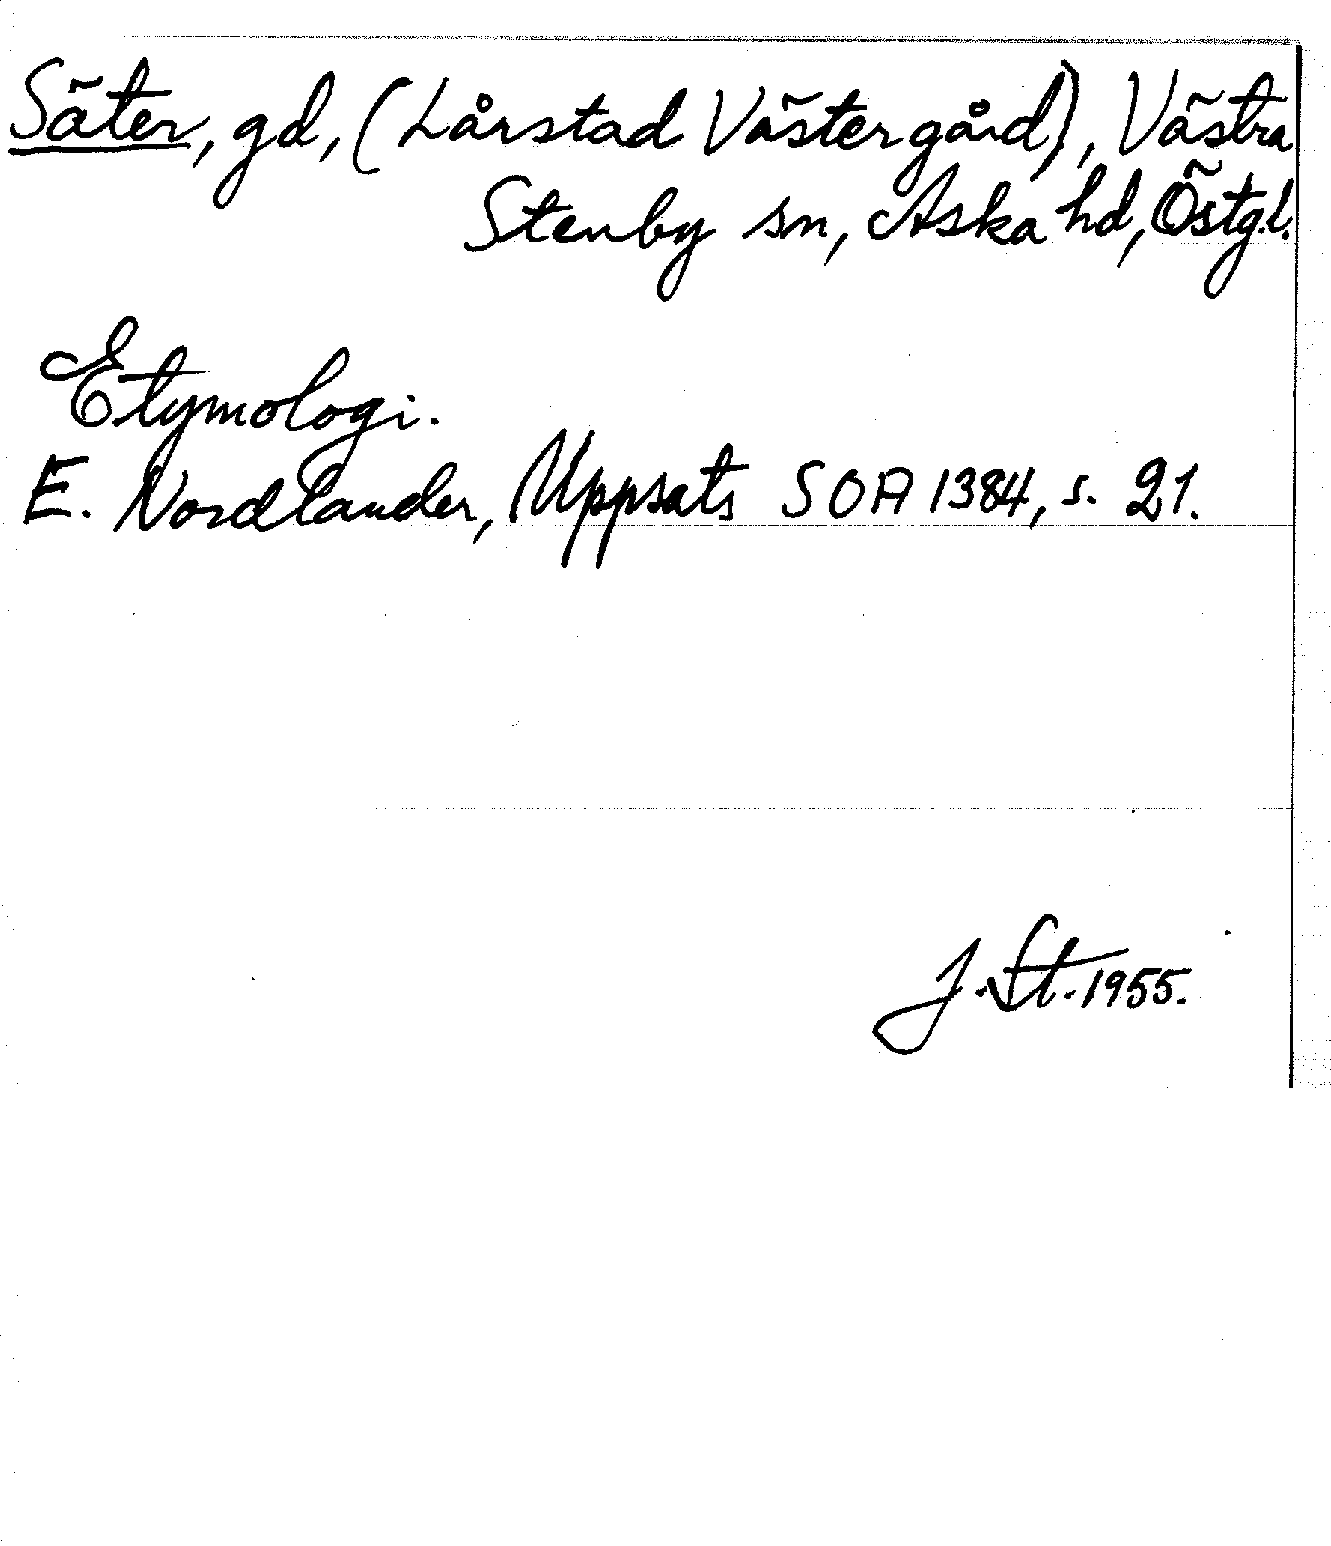 Säter, gd, (Lårstad Västergård), Västra
Stenby sn, Aska hd, Östg.l.
Etymologi.
E. Nordlander, Uppsats SOA 1384, s. 21.
J. St. 1955.